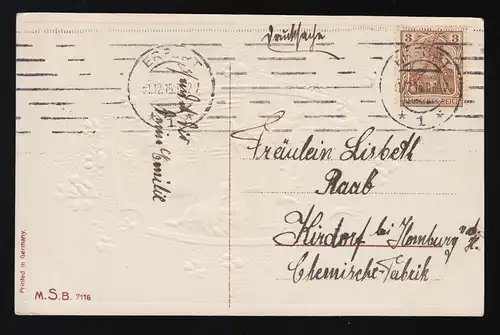 Drucksache
3 3
DEUTSCHES REICH
ERFURT
1.12.15
1
ERFURT
* 1 *
Emilie
Fräulein Lisbeth
Raab
Kirdorf bei Homburg v. d. H.
Chemische-Fabrik
Printed in Germany.
M.S.B. 7116